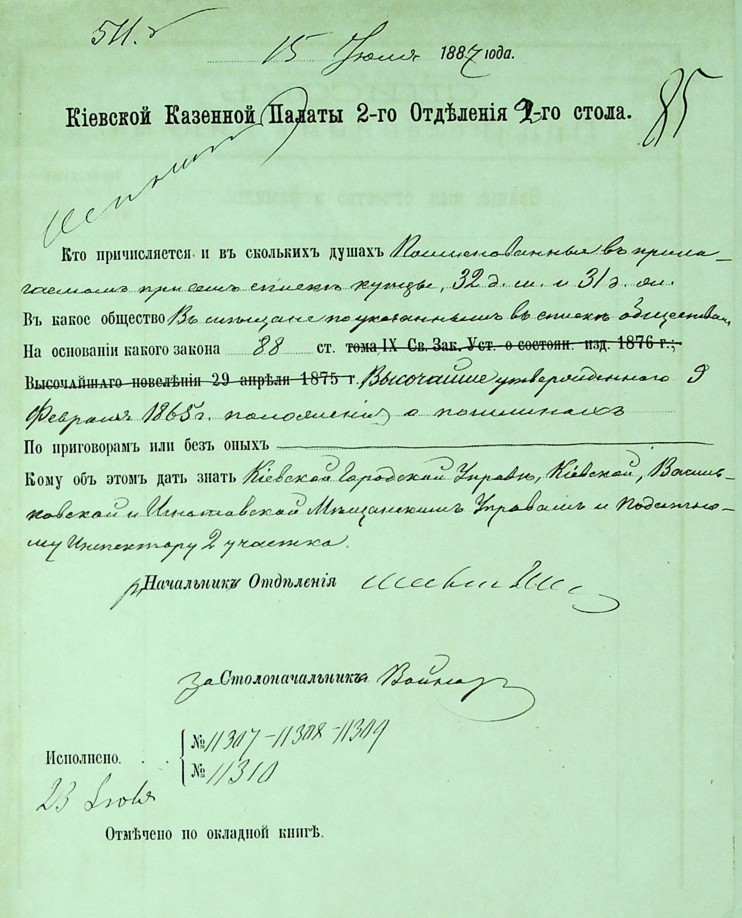 511.
15 Іюля 1887 года.
85
Кіевской Казенной Палаты 2-го Отдѣленія 2-го стола.
Кто причисляется и въ сколькихъ душахъ Поименованные въ прила-
гаемомъ при семъ спискѣ купцы, 32 д. м. и 31 д. ж.
Въ какое общество Въ мѣщане по указаннымъ въ спискѣ обществамъ
На основаніи какого закона 88 ст. тома IX Св. Зак. Уст. о состоян. изд. 1876 г.,
Высочайшаго повелѣнія 29 апрѣля 1875 г. Высочайше утвержденного 9
Февраля 1865 г. положенія о пошлинахъ
По приговорамъ или безъ оныхъ
Кому объ этомъ дать знать Кіевской Городской Управѣ, Кіевской, Василь-
ковской и Игнатовской Мѣщанскимъ Управамъ и Податно-
му Инспектору 2 участка.
Начальникъ Отдѣленія
за Столоначальника Войнар
№ 11307-11308-11309
Исполнено. . .
№ 11310
23 Іюля
Отмѣчено по окладной книгѣ.